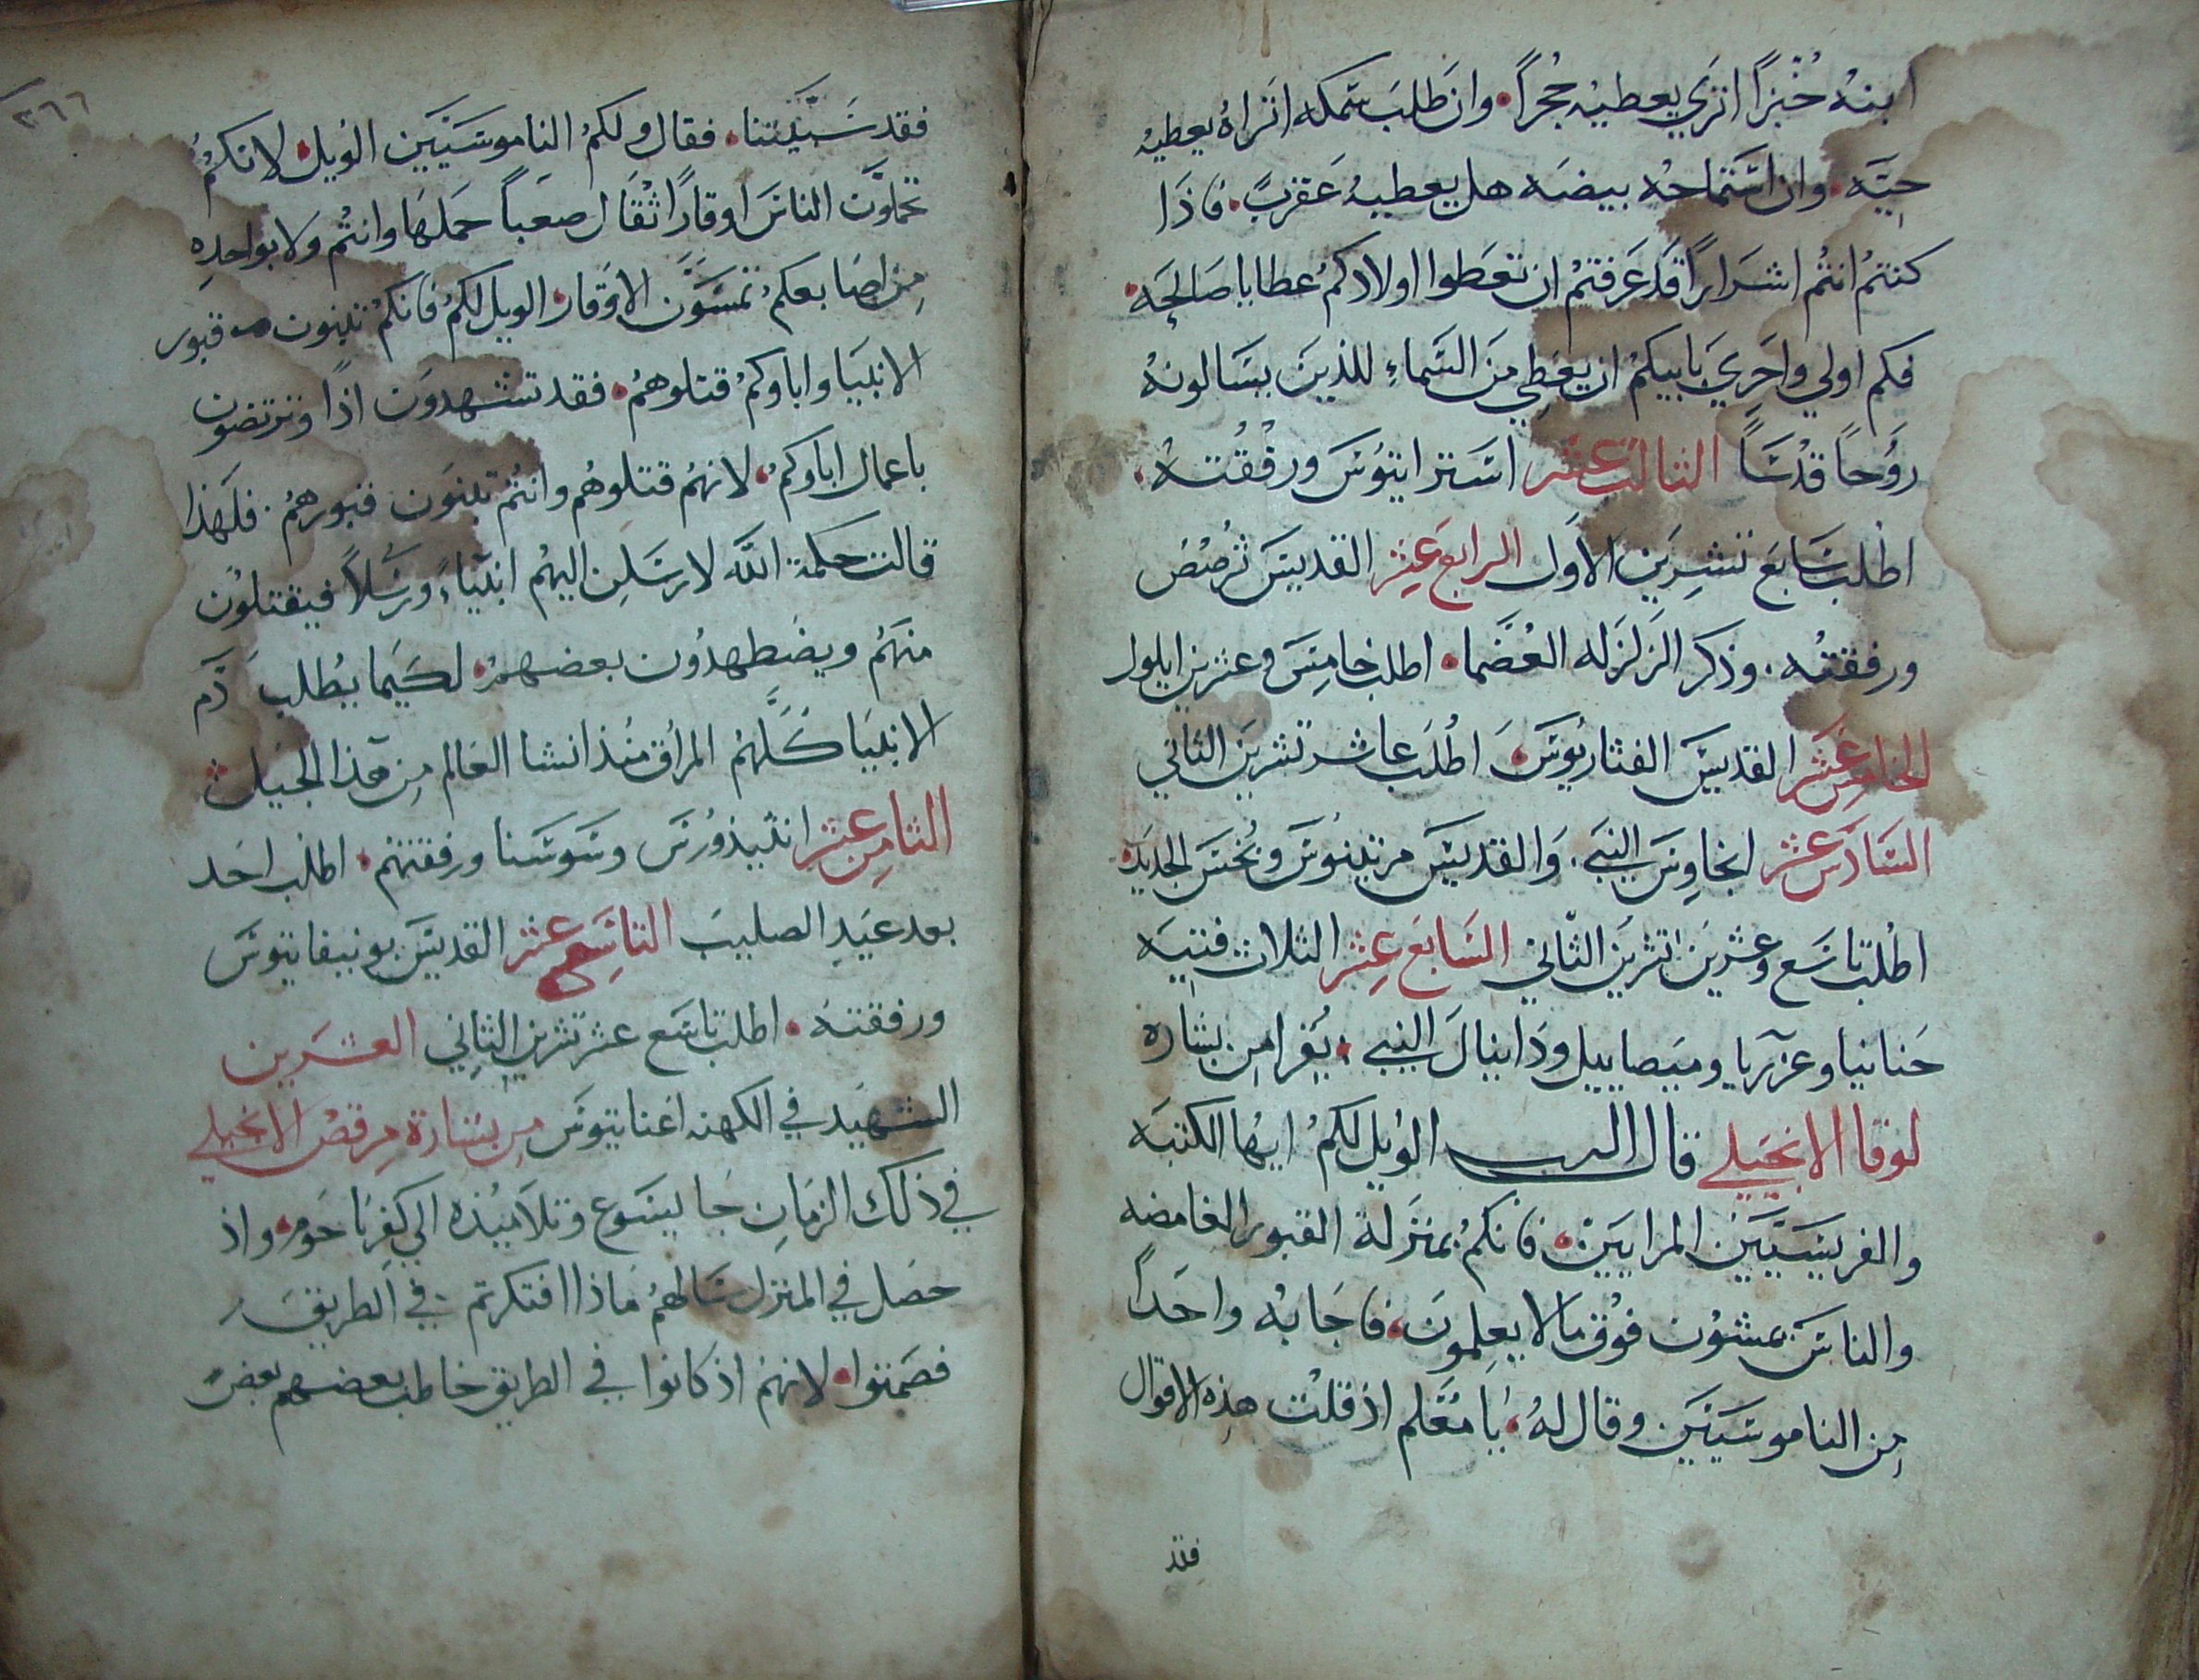 ابنهُ خُبْزاً اترَي يعطيهِ حُجراً. وان طلبَ سَمكه اتراهُ يعطيهِ
حيَّه. وان استَماحهُ بيضه هل يعطيهُ عَقربً. فاذَا
كنتمُ انتُم اشرَاراً قدَ عَرفتمُ ان تعَطوا اولادكمُ عطايا صَالحَه.
فكم اولي واحَرِي بَابيكمُ ان يعَطِي مِنَ السَماءِ للذينَ يسَالونهُ
رَوُحاً قدُسَاً الثالث عشر اسَتراتيوُسَ ورفُقُتهُ.
اطْلب سَابعَ تشرِين الاول الرابع عَشِر القديسَ تُرصُصُ
ورفقتهُ. وذكر الزَلزَله العُضَما. اطلب خامِسَ وعشرين ايلول
الخامِس عَشَر القديسَ الفثاريوُسَ اطْلبَ عاشر تشرينَ الثاني
السَادَس عشر انجاوسَ النبَي. وَالقديسَ مرتينوُسَ وبُخسَ الجديد
اطْلب تاسَع وعشرينَ تشرينَ الثاني السَابَع عشِر الثلاث فتيَه
حَنانيا وعزَريا وميَصاييل ودَانيالَ النبي. يُقرا مِن بشاره
لوقا الانجيَلي قال الرب الوُيل لكمُ ايهُا الكتبَه
والفريسَيَين المراييَن. فانكمُ بمنزَلة القبور الغامضه
والناسَ يمشوُن فوُق مالا يعلِموُن. فاجَابهُ واحَداً
مِن الناموسَيَينَ وقال لهُ. يُا معَُلم اذ قلت هذِه الاقوال
فقد
٣٦٦
فقد شَتَمَتنا. فقال ولكمُ الناموسَييَن الوُيل. لانكمُ
تحملوَن الناسَ اوقاراً ثقُال صعَباً حَملهَا وانتُم ولا بواحدِه
مِن اصَابعكمُ تمسَوَن الاوقار. الويل لكمُ فانكمُ تبنون قبور
الانبيَا واباوكمُ قتلوهمُ. فقد تشهدوَن اذاً وترتضون
باعمال اباوكمُ. لانهمُ قتلوهُم وانتمُ تبنوَن قبورهمُ. فلهَذا
قالت حكمة الله لارسَلِن اليهُم انبيَاءَ ورُسَلاً فيقتلوُن
منهَمُ ويضَطهدُون بعضهمُ. لكَيما يُطلب دَم
الانبيَا كَُلهمُ المراُق منُذ انشا العَالم مِن هذا الجيل
الثامِن عشر انثيذوُرسَ وسَوسَنا ورفقتهم. اطلب احَد
بعد عيَد الصليبَ التاسَع عشر القديسَ بونيفاتيوسَ
ورفقتهُ. اطلب تاسَع عشر تشرين الثاني العشرَين
الشهيَد في الكهنه اغناتيوسَ مِن بشارة مرقصُ الانجيلي
في ذلك الزمَان جَا يسَوع وتلاميُذه الي كفرنا حَوم. واذ
حصَل في المنزل سَالهمُ مَاذا افتكرتم في الطريقَ
فصَمتوا. لانهمُ اذ كانوا في الطريق خاطب بعضهم بعضً